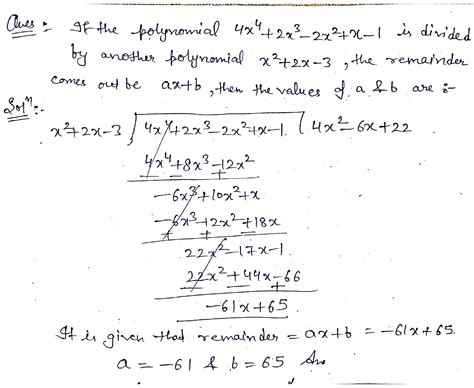 Ques :- If the polynomial 4x⁴+2x³-2x²+x-1 is divided
by another polynomial x²+2x-3, the remainder
comes out be ax+b, then the values of a & b are :-
Solⁿ:-
x²+2x-3 ) 4x⁴+2x³-2x²+x-1 ( 4x²-6x+22
4x⁴+8x³-12x²
- - +
-6x³+10x²+x
-6x³-12x²+18x
+ + -
22x²-17x-1
22x²+44x-66
- - +
-61x+65
It is given that remainder = ax+b = -61x+65
a = -61 & b = 65 Ans